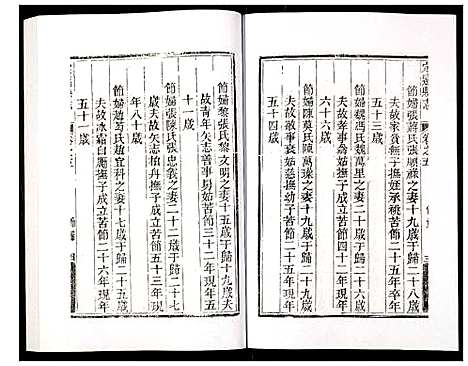 節婦蕭氏張順祿之妻十九歲于歸二十八歲
夫故家貧無子撫姪承祧苦節二十五年卒年
五十三歲
節婦魏馮氏魏之星之妻十八歲于歸二十五歲
夫故孝事翁姑撫子成立苦節四十二年現年
六十六歲
節婦陳莫氏陳萬瑧之妻十九歲于歸二十九歲
夫故敬事衰姑慈撫幼子苦節二十六年現年
五十四歲
節婦黎張氏黎文明之妻十五歲于歸十九歲夫
故青年矢志善事易姑苦節三十二年現年五
十一歲
節婦張陳氏張忠義之妻二十二歲于歸二十七
歲夫故矢志柏舟撫子成立苦節五十三年現
年八十歲
節婦趙葛氏趙宜科之妻十七歲于歸二十五歲
夫故冰霜自厲撫子成立苦節二十六年現年
五十一歲